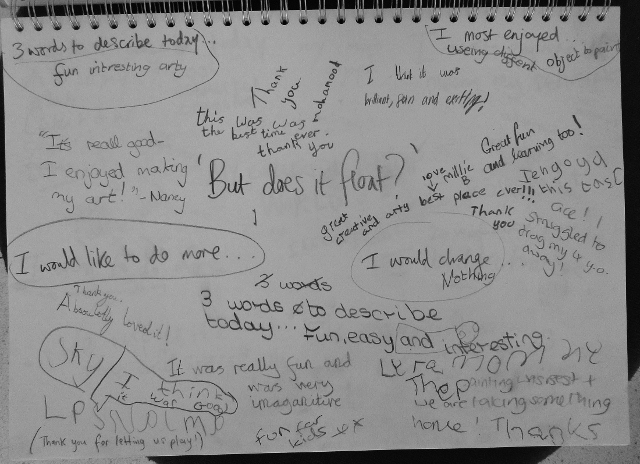 3 words to describe today...
fun intresting arty
I most enjoyed...
useing object to paint
Thank
you
this was was
the best time ever.
thank you
I it was
brilliant, fun and
"It's reall good-
I enjoyed making
my art!" - Nancy
'But does it float?'
love millie B
great creative and arty best place ever!!!
Great fun
and learning too!
Iengoyd
this tasc
Thank
you
ace!!
Struggled to
drag my 4 y.o.
away!
I would like to do more...
I would change...
Nothing
Thank you...
Absolutely loved it!
3 words
3 words to describe
today... Fun, easy, and interesting.
Sky
I think
it was Good
It was really fun and
was very
imaganitive
The painting was best +
we are taking something
home! Thanks
(Thank you for letting us play!)
fun for
kids xx